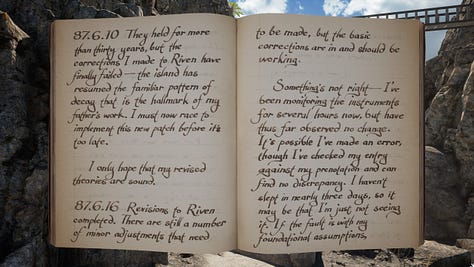 87.6.10 They held for more
than thirty years, but the
corrections I made to Riven have
finally failed — the island has
resumed the familiar pattern of
decay that is the hallmark of my
father's work. I must now race to
implement this new patch before it's
too late.
I only hope that my revised
theories are sound.
87.6.16 Revisions to Riven
completed. There are still a number
of minor adjustments that need
to be made, but the basic
corrections are in and should be
working.
Something's not right — I've
been monitoring the instruments
for several hours now, but have
thus far observed no change.
It's possible I've made an error,
though I've checked my entry
against my prenotation and can
find no discrepancy. I haven't
slept in nearly three days, so it
may be that I'm just not seeing
it. If the fault is with my
foundational assumptions,